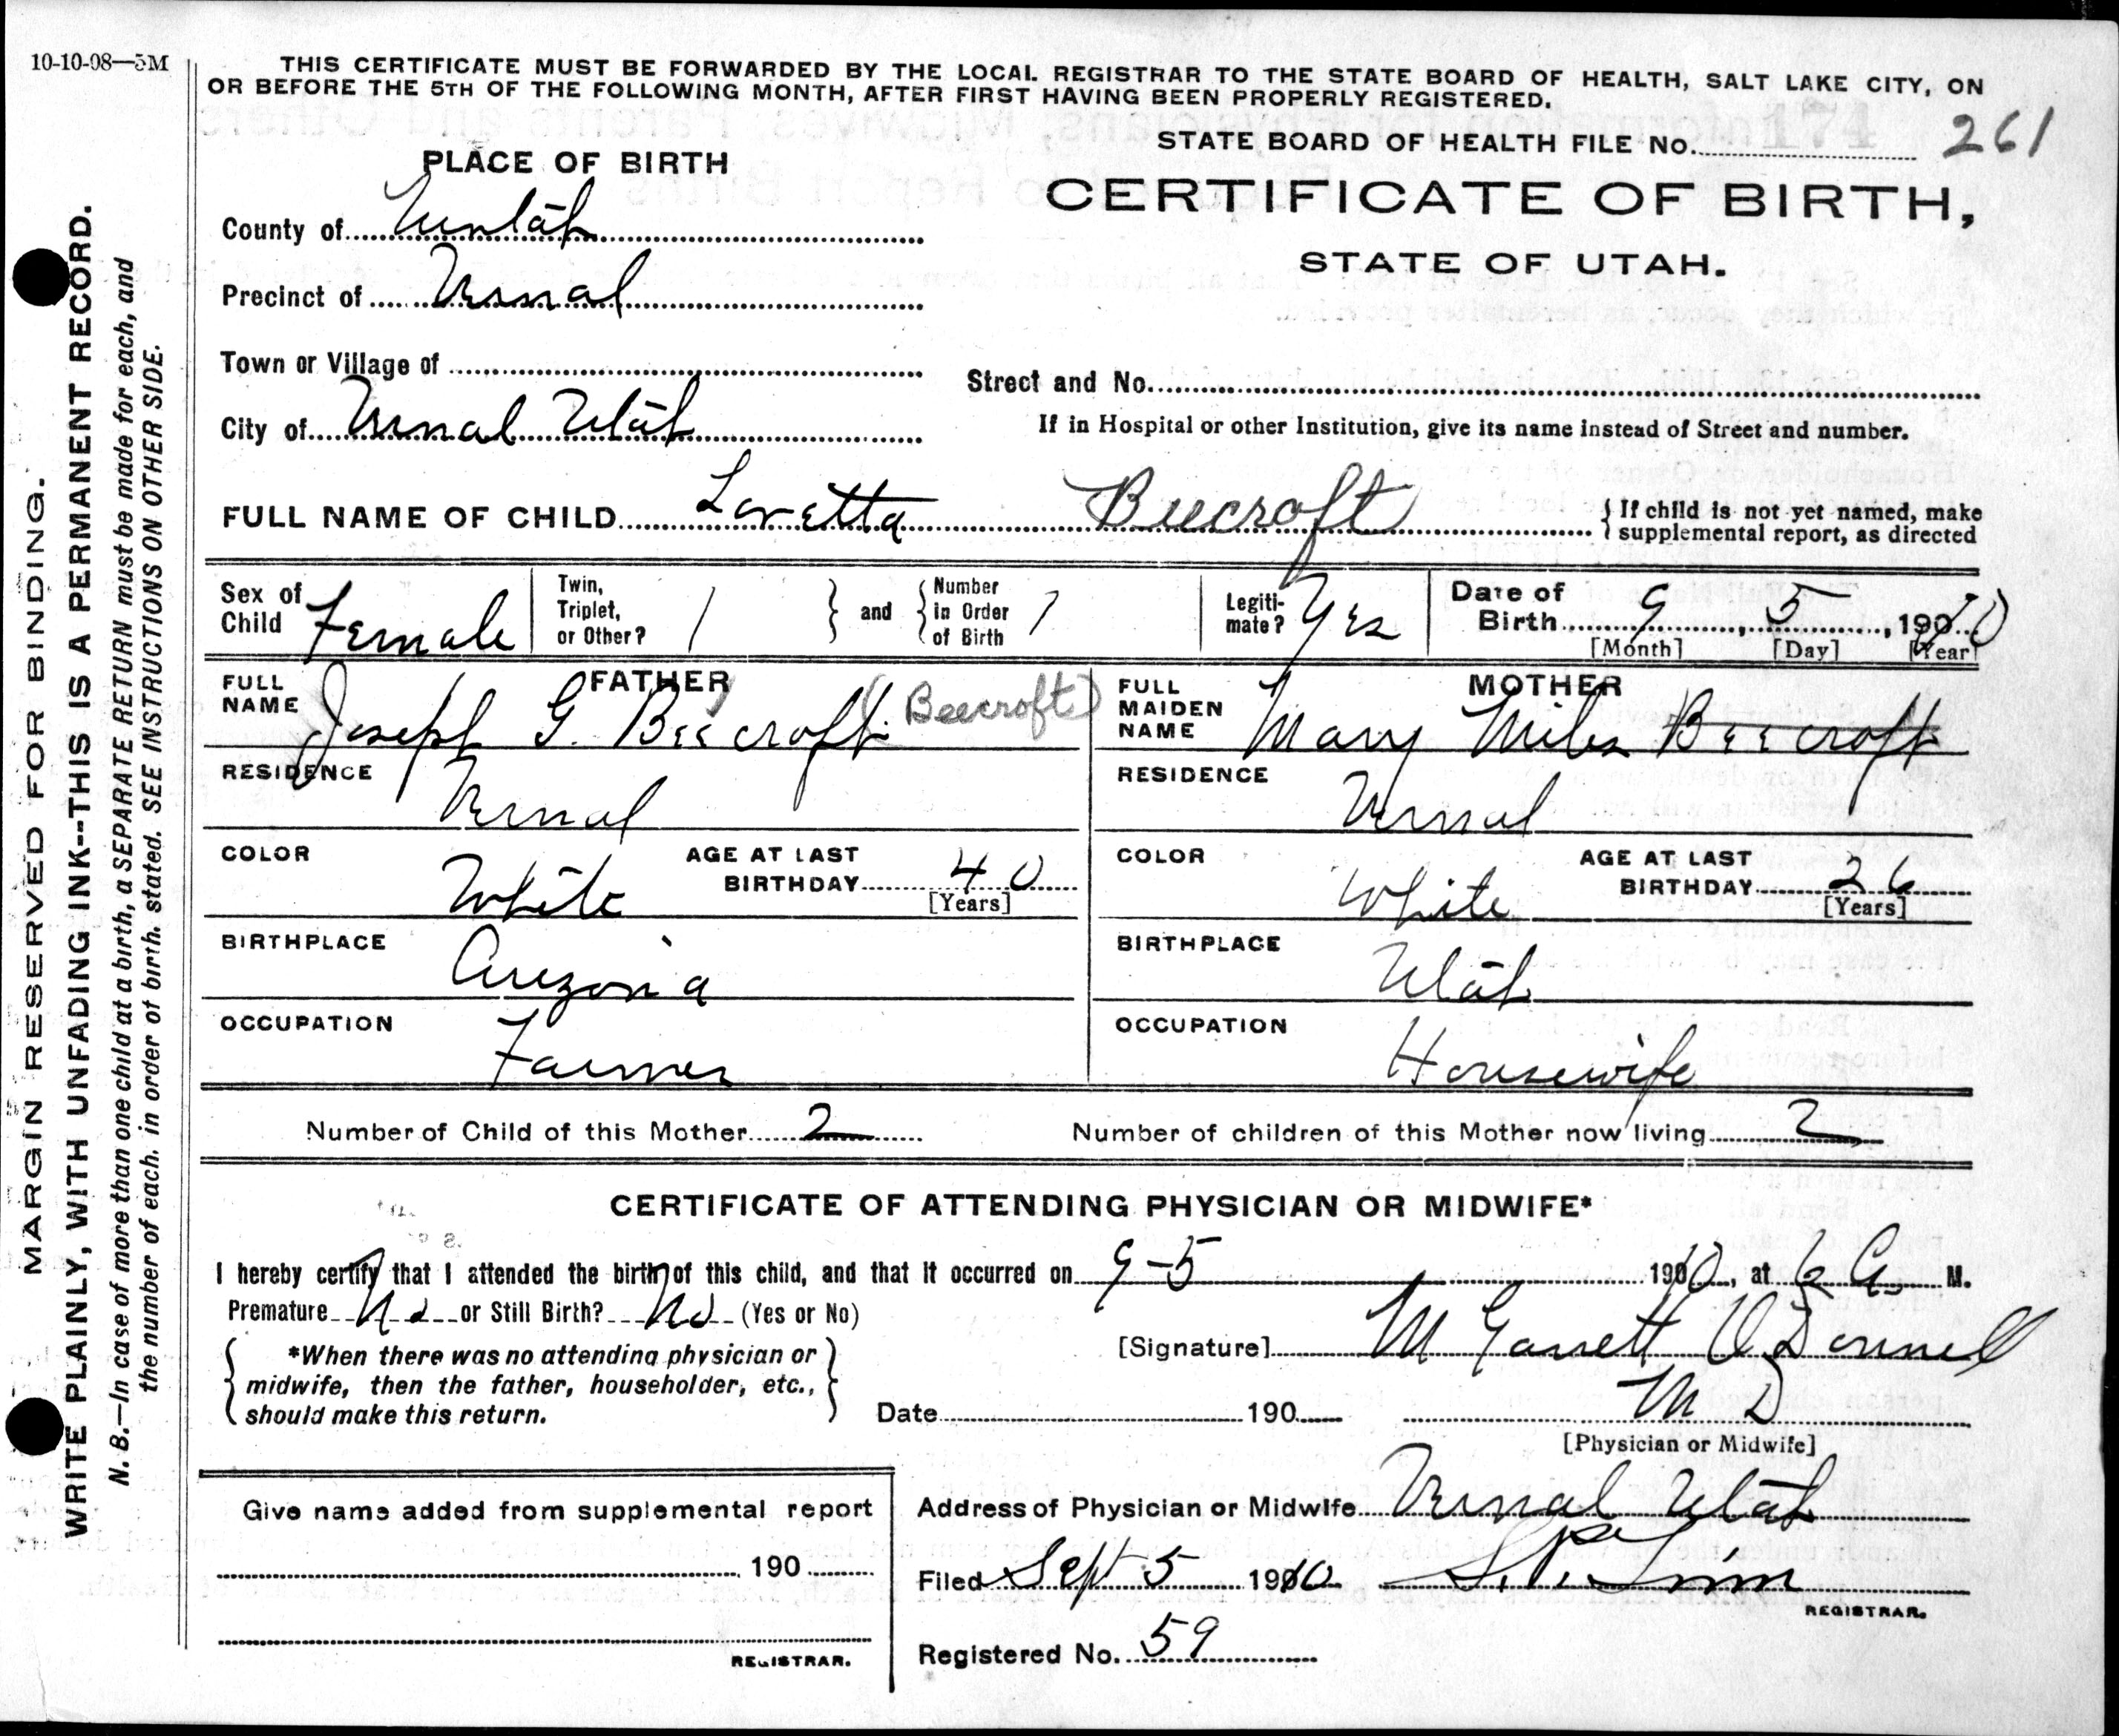 10-10-08—5M
THIS CERTIFICATE MUST BE FORWARDED BY THE LOCAL REGISTRAR TO THE STATE BOARD OF HEALTH, SALT LAKE CITY, ON
OR BEFORE THE 5TH OF THE FOLLOWING MONTH, AFTER FIRST HAVING BEEN PROPERLY REGISTERED.
STATE BOARD OF HEALTH FILE NO. 174 261
PLACE OF BIRTH
CERTIFICATE OF BIRTH,
STATE OF UTAH.
County of Uintah
Precinct of Vernal
Town or Village of
Street and No.
City of Vernal Utah
If in Hospital or other Institution, give its name instead of Street and number.
FULL NAME OF CHILD Lovetta Beecroft
{ If child is not yet named, make
supplemental report, as directed
Sex of Child Female
Twin, Triplet, or Other? 1
} and {
Number in Order of Birth 1
Legiti-mate? Yes
Date of Birth 9, 5, 1910
[Month] [Day] [Year]
FATHER
FULL NAME Joseph G. Beecroft (Beecroft)
MOTHER
FULL MAIDEN NAME Mary Miles Beecroft
RESIDENCE Vernal
RESIDENCE Vernal
COLOR White
AGE AT LAST BIRTHDAY 40 [Years]
COLOR White
AGE AT LAST BIRTHDAY 26 [Years]
BIRTHPLACE Arizona
BIRTHPLACE Utah
OCCUPATION Farmer
OCCUPATION Housewife
Number of Child of this Mother 2
Number of children of this Mother now living 2
CERTIFICATE OF ATTENDING PHYSICIAN OR MIDWIFE*
I hereby certify that I attended the birth of this child, and that it occurred on 9-5 1910, at 6 A. M.
Premature No or Still Birth? No (Yes or No)
*When there was no attending physician or
midwife, then the father, householder, etc.,
should make this return.
[Signature] M Garrett O'Donnell
Date 190
M D
[Physician or Midwife]
Give name added from supplemental report
190
REGISTRAR.
Address of Physician or Midwife Vernal Utah
Filed Sept 5 1910
REGISTRAR.
Registered No. 59
MARGIN RESERVED FOR BINDING.
WRITE PLAINLY, WITH UNFADING INK--THIS IS A PERMANENT RECORD.
N. B.—In case of more than one child at a birth, a SEPARATE RETURN must be made for each, and
the number of each. in order of birth. stated. SEE INSTRUCTIONS ON OTHER SIDE.